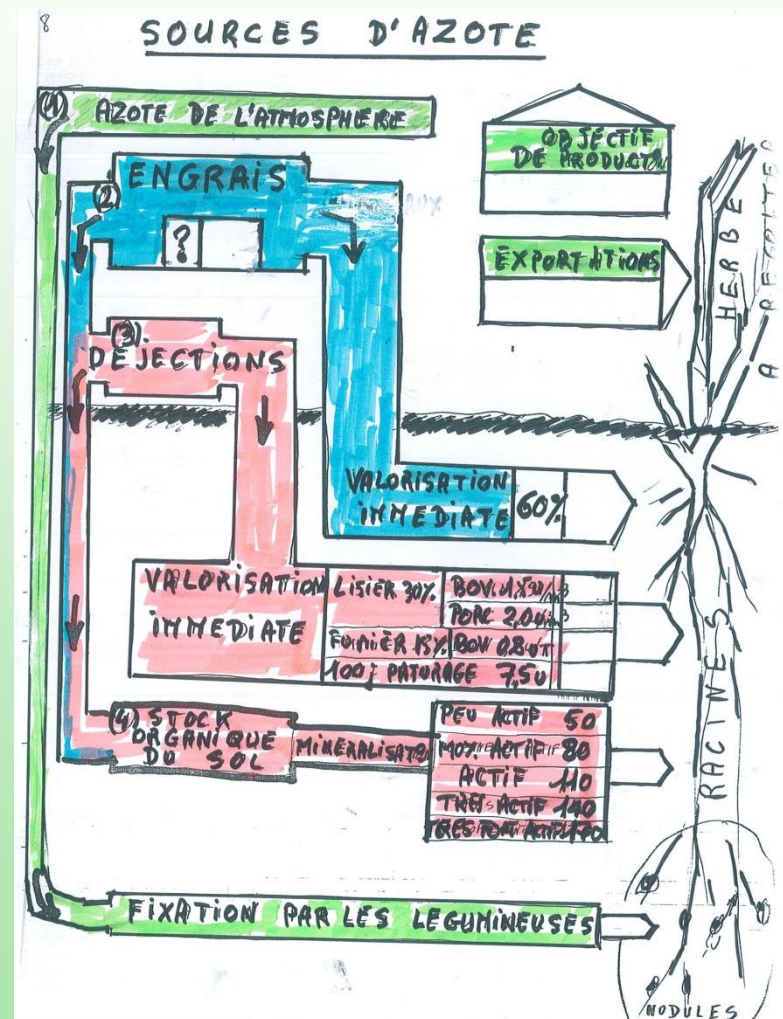 8
SOURCES D'AZOTE
(1) AZOTE DE L'ATMOSPHERE
OBJECTIF
DE PRODUCTN
(2) ENGRAIS
?
EXPORTATIONS
HERBE
A RECOLTER
(3)
DEJECTIONS
VALORISATION
IMMEDIATE
60%
VALORISATION
IMMEDIATE
LISIER 30%
BOVIN
PORC 2,0
FUMIER 15%
BOV 0,8
100 j PATURAGE 7,5U
RACINES
(4) STOCK
ORGANIQUE
DU SOL
MINERALISATN
PEU ACTIF 50
MOY. ACTIF 80
ACTIF 110
TRES ACTIF 140
TRES TRES ACTIF 170
FIXATION PAR LES LEGUMINEUSES
NODULES